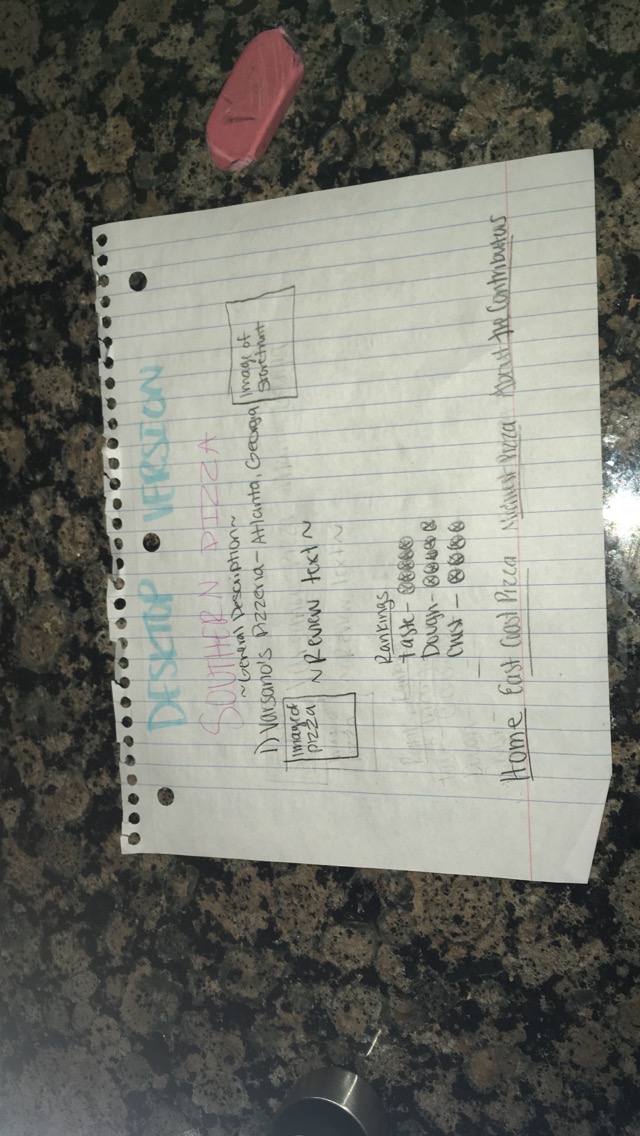 DESKTOP VERSION
SOUTHERN PIZZA
~General Description~
1) Varsano's Pizzeria - Atlanta, Georgia
Image of
Storefront
Image of
pizza
~ Review text ~
Rankings
Taste -
Dough -
Crust -
Home East Coast Pizza Midwest Pizza About the Contributors